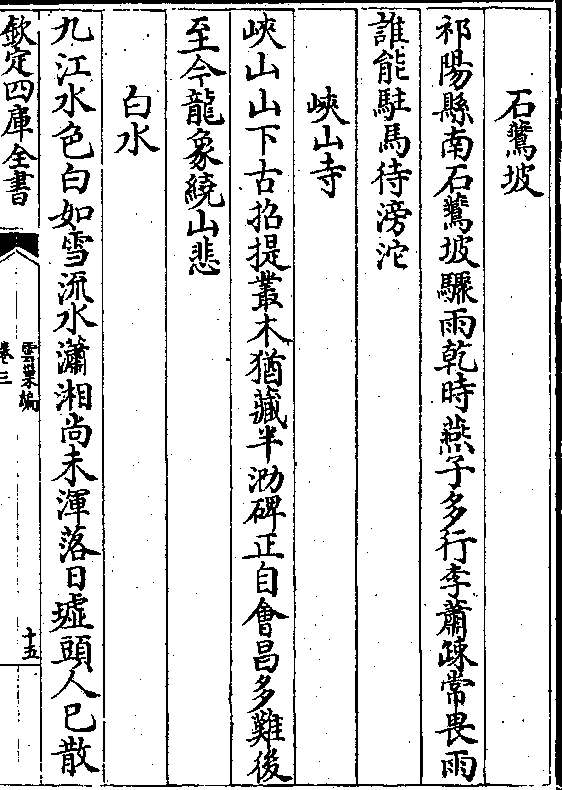 石鷰坡
祁陽縣南石鷰坡驟雨乾時燕子多行李蕭疎常畏雨
誰能駐馬待滂沱
峽山寺
峽山山下古招提叢木猶藏半泐碑正自會昌多難後
至今龍象繞山悲
白水
九江水色白如雪流水瀟湘尚未渾落日墟頭人已散
欽定四庫全書
雲巢編
卷三
十五